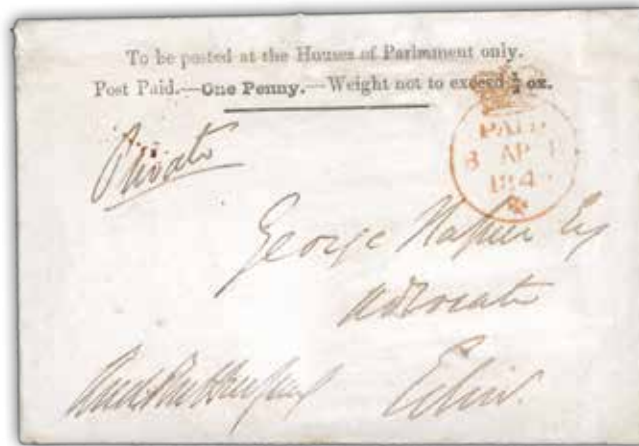 To be posted at the Houses of Parliament only.
Post Paid.—One Penny.—Weight not to exceed ½ oz.
PAID
8 AP 8
184
Private
George Napier Esq
Advocate
Edinr.